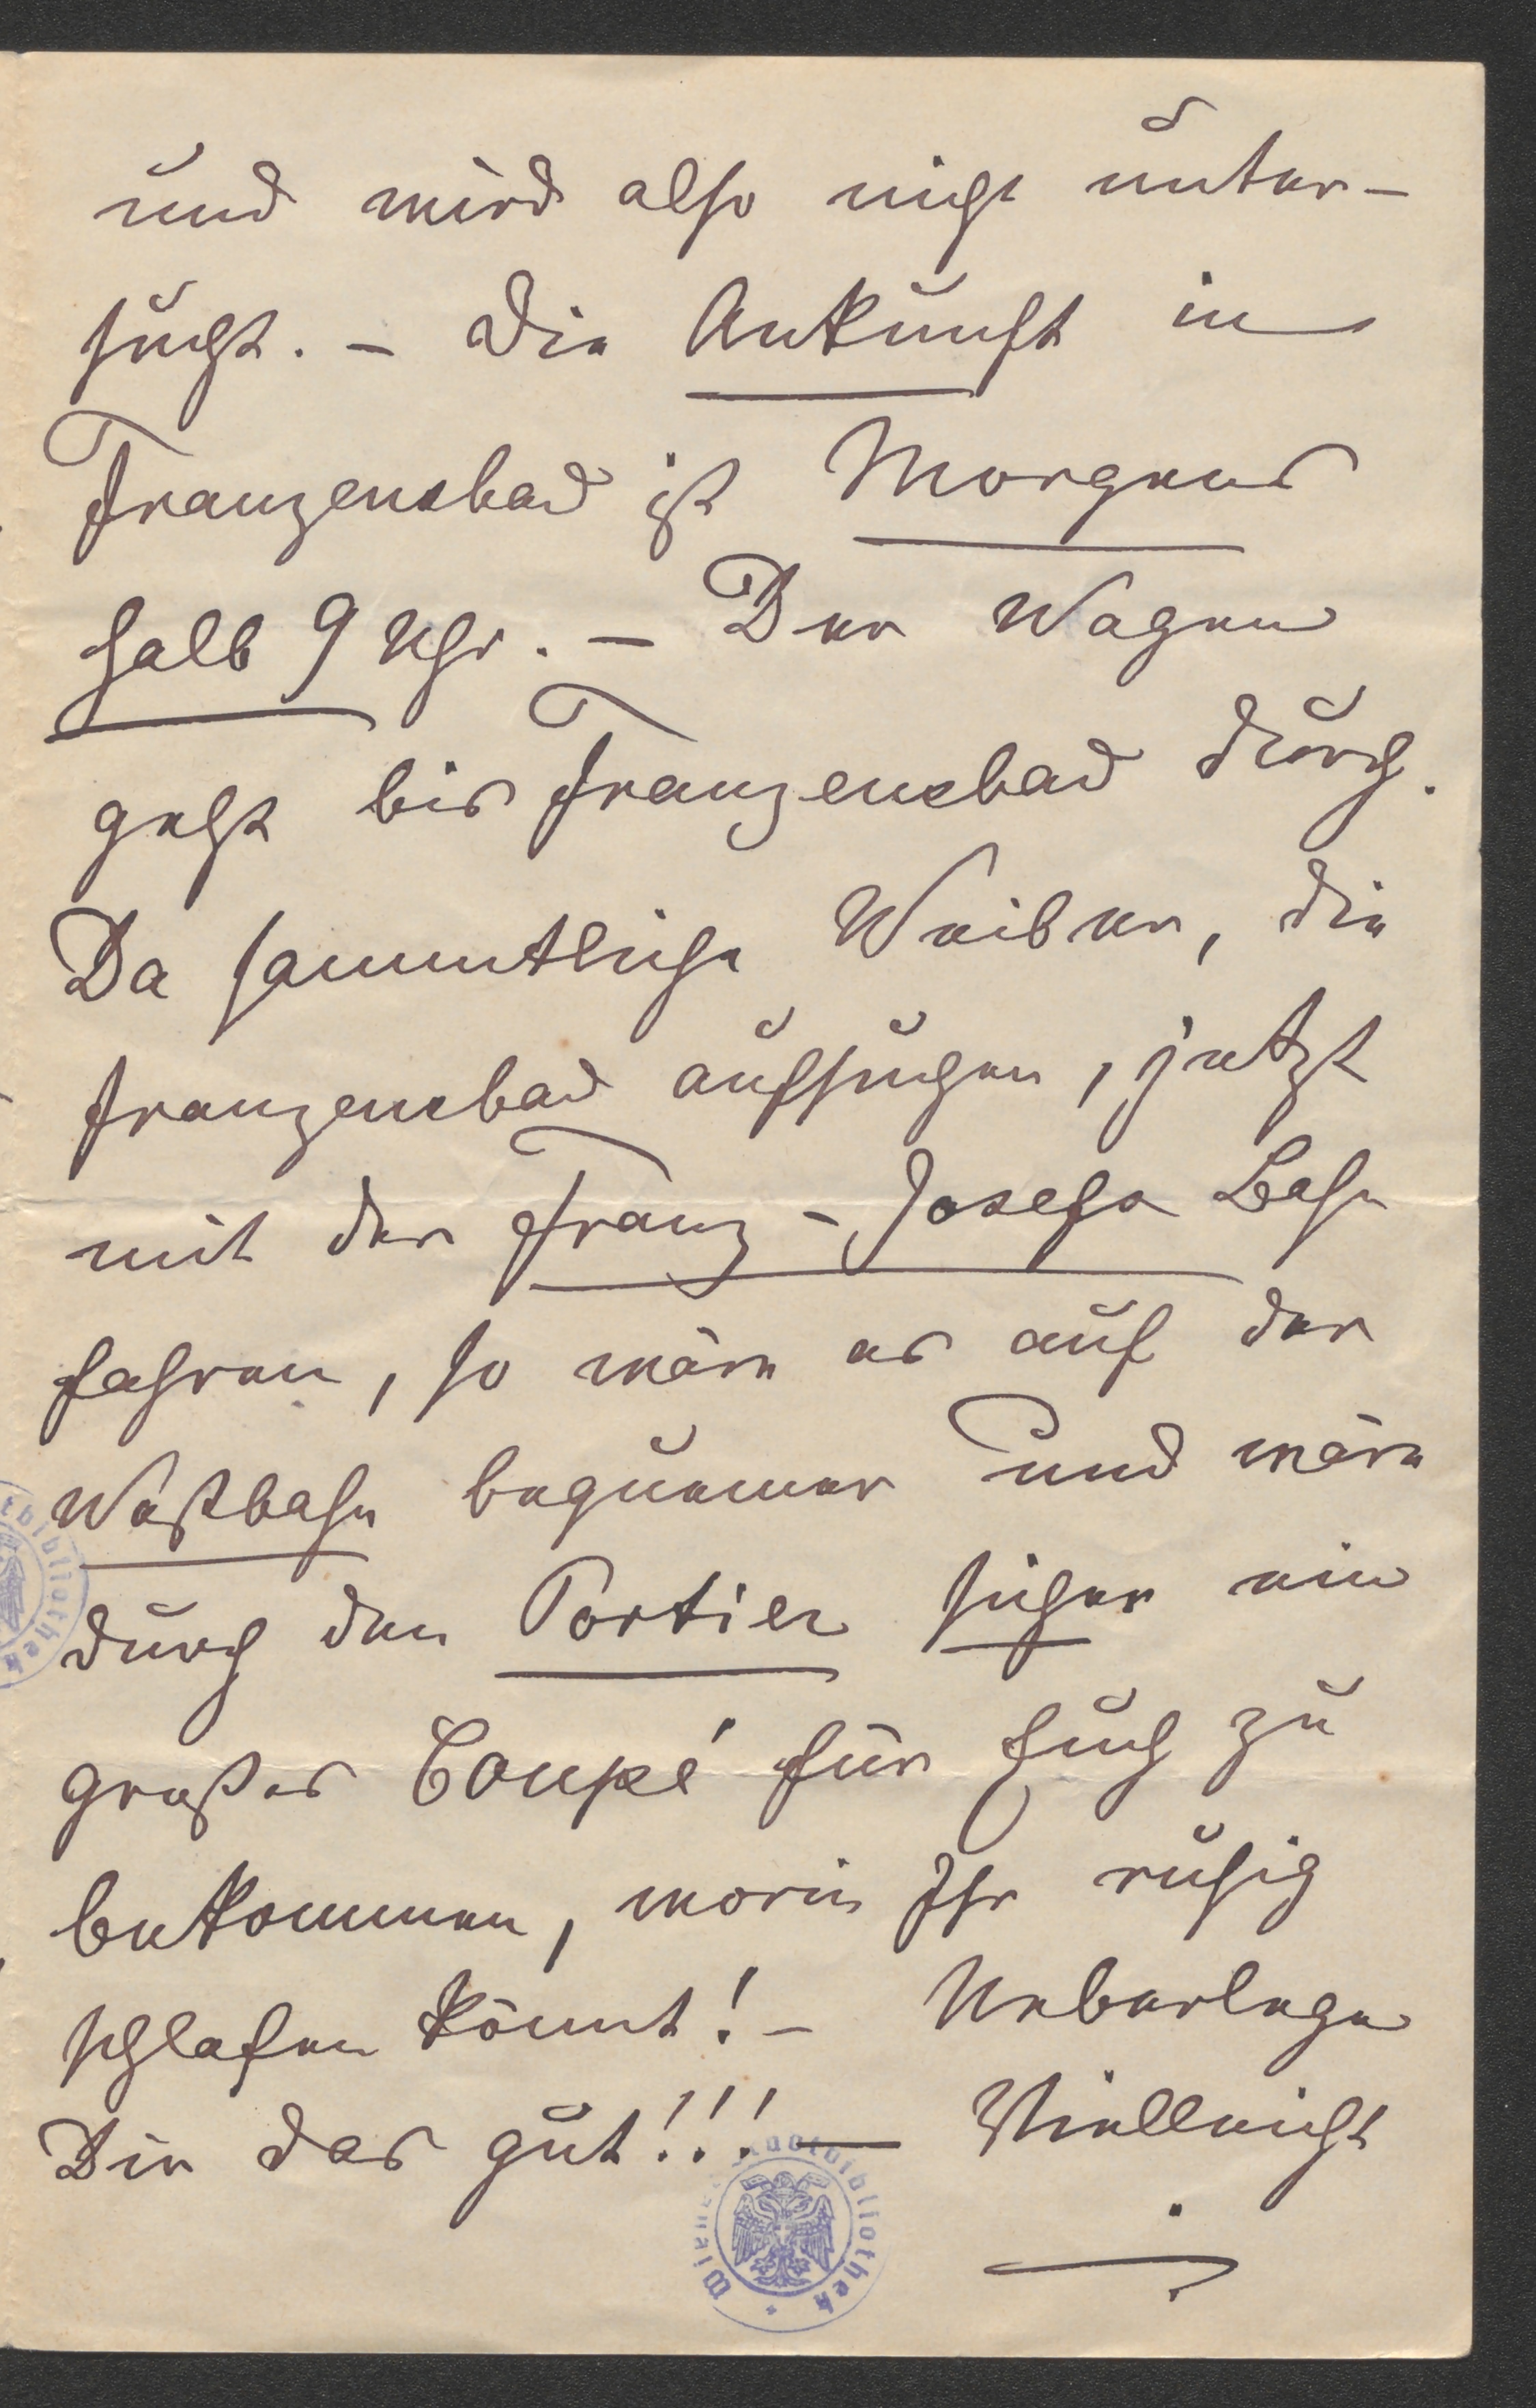 und wird also nicht unter-
sucht. - Die Ankunft in
Franzensbad ist Morgens
halb 9 Uhr. - Der Wagen
geht bis Franzensbad durch.
Da sammtliche Weiber, die
Franzensbad aufsuchen, jetzt
mit der Franz - Josefs Bahn
fahren, so wäre es auf der
Westbahn bequemer und wäre
durch den Portier sicher ein
großes Coupé für Euch zu
bekommen, worin Ihr ruhig
schlafen könnt! - Ueberlege
Dir das gut!!! - Vielleicht
Wiener Stadtbibliothek